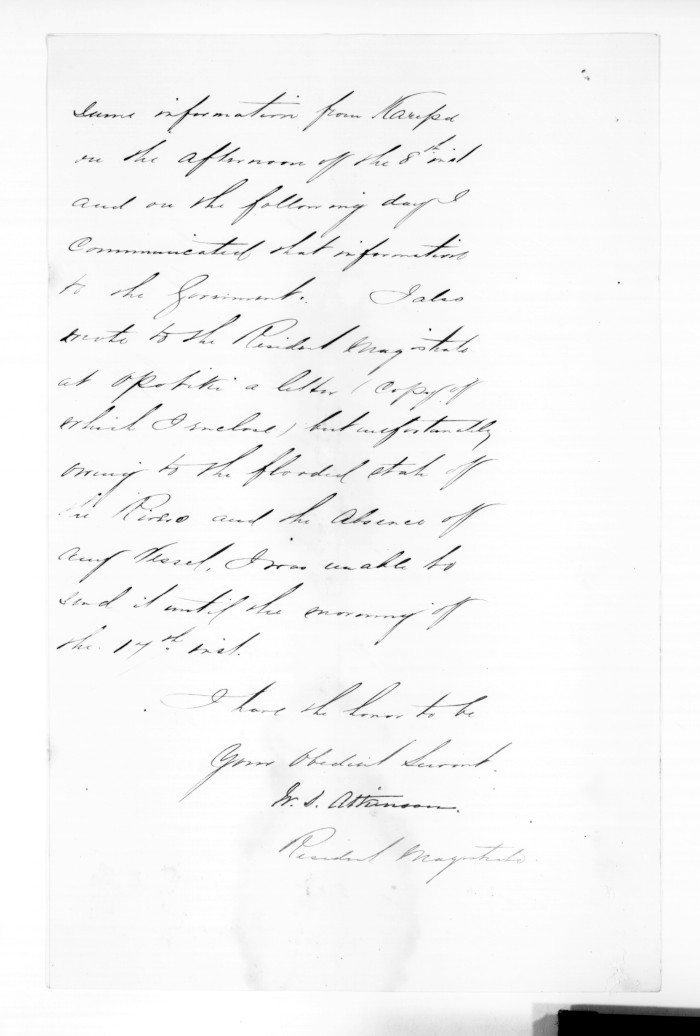 some information from Karepa
on the afternoon of the 8th inst
and on the following day I
communicated that information
to the Government. I also
wrote to the Resident Magistrate
at Opotiki a letter (copy of
which I enclose) but unfortunately
owing to the flooded state of
the Rivers and the absence of
any Vessel, I was unable to
send it until the morning of
the 17th inst.
I have the honor to be
Your Obedient Servant.
W. S. Atkinson.
Resident Magistrate